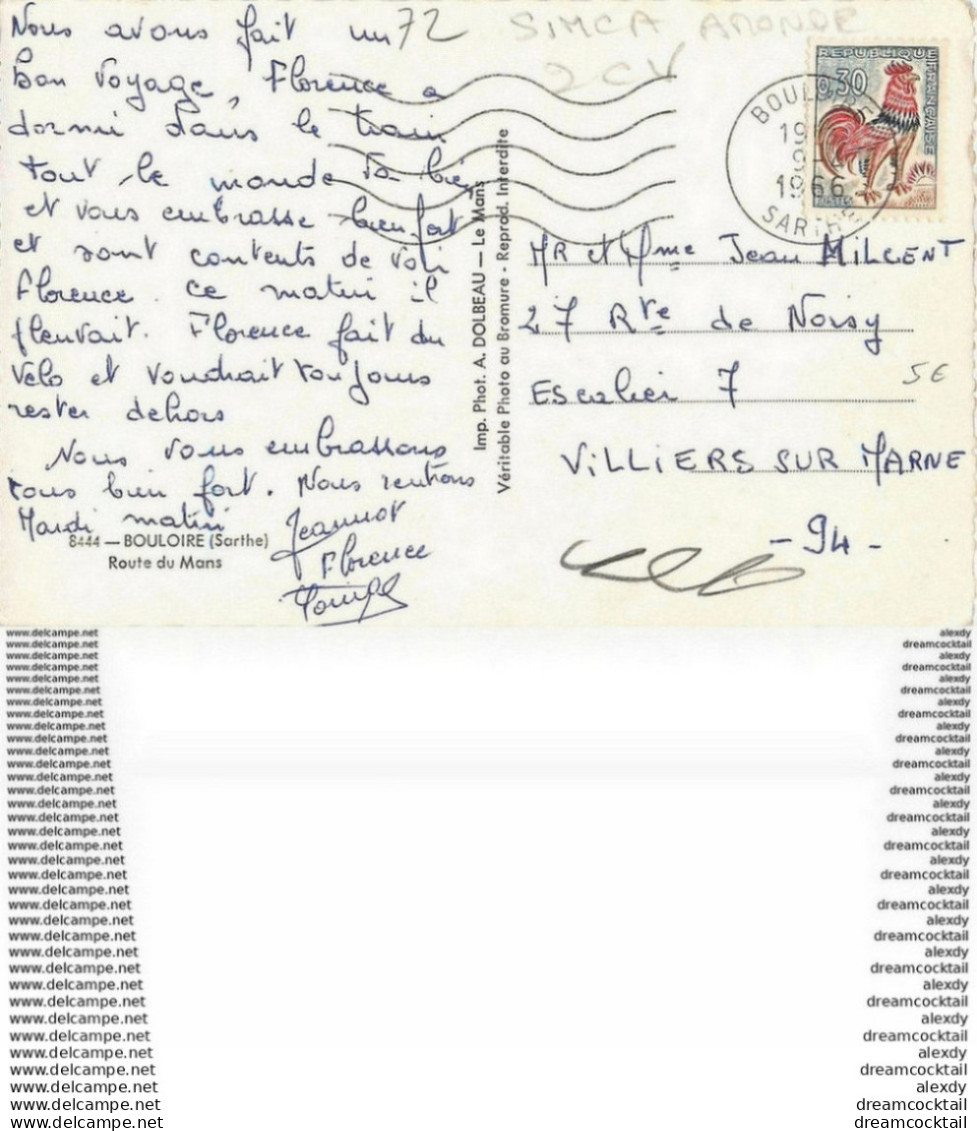 Nous avons fait un
bon voyage, Florence a
dormi dans le train
tout le monde va bien
et vous embrasse bien fort
et sont contents de voir
Florence. Ce matin il
pleuvait. Florence fait du
vélo et voudrait toujours
rester dehors
Nous vous embrassons
tous bien fort. Nous rentrons
Mardi matin
Jeannot
Florence
8444 — BOULOIRE (Sarthe)
Route du Mans
72
SIMCA ARONDE
2 CV
Imp. Phot. A. DOLBEAU — Le Mans
Véritable Photo au Bromure - Reprod. Interdite
REPUBLIQUE FRANÇAISE
0,30
BOULOIRE
1966
SARTHE
MR et Mme Jean MILCENT
27 Rte de Noisy
Escalier 7
5€
VILLIERS SUR MARNE
- 94 -
www.delcampe.net
alexdy
dreamcocktail